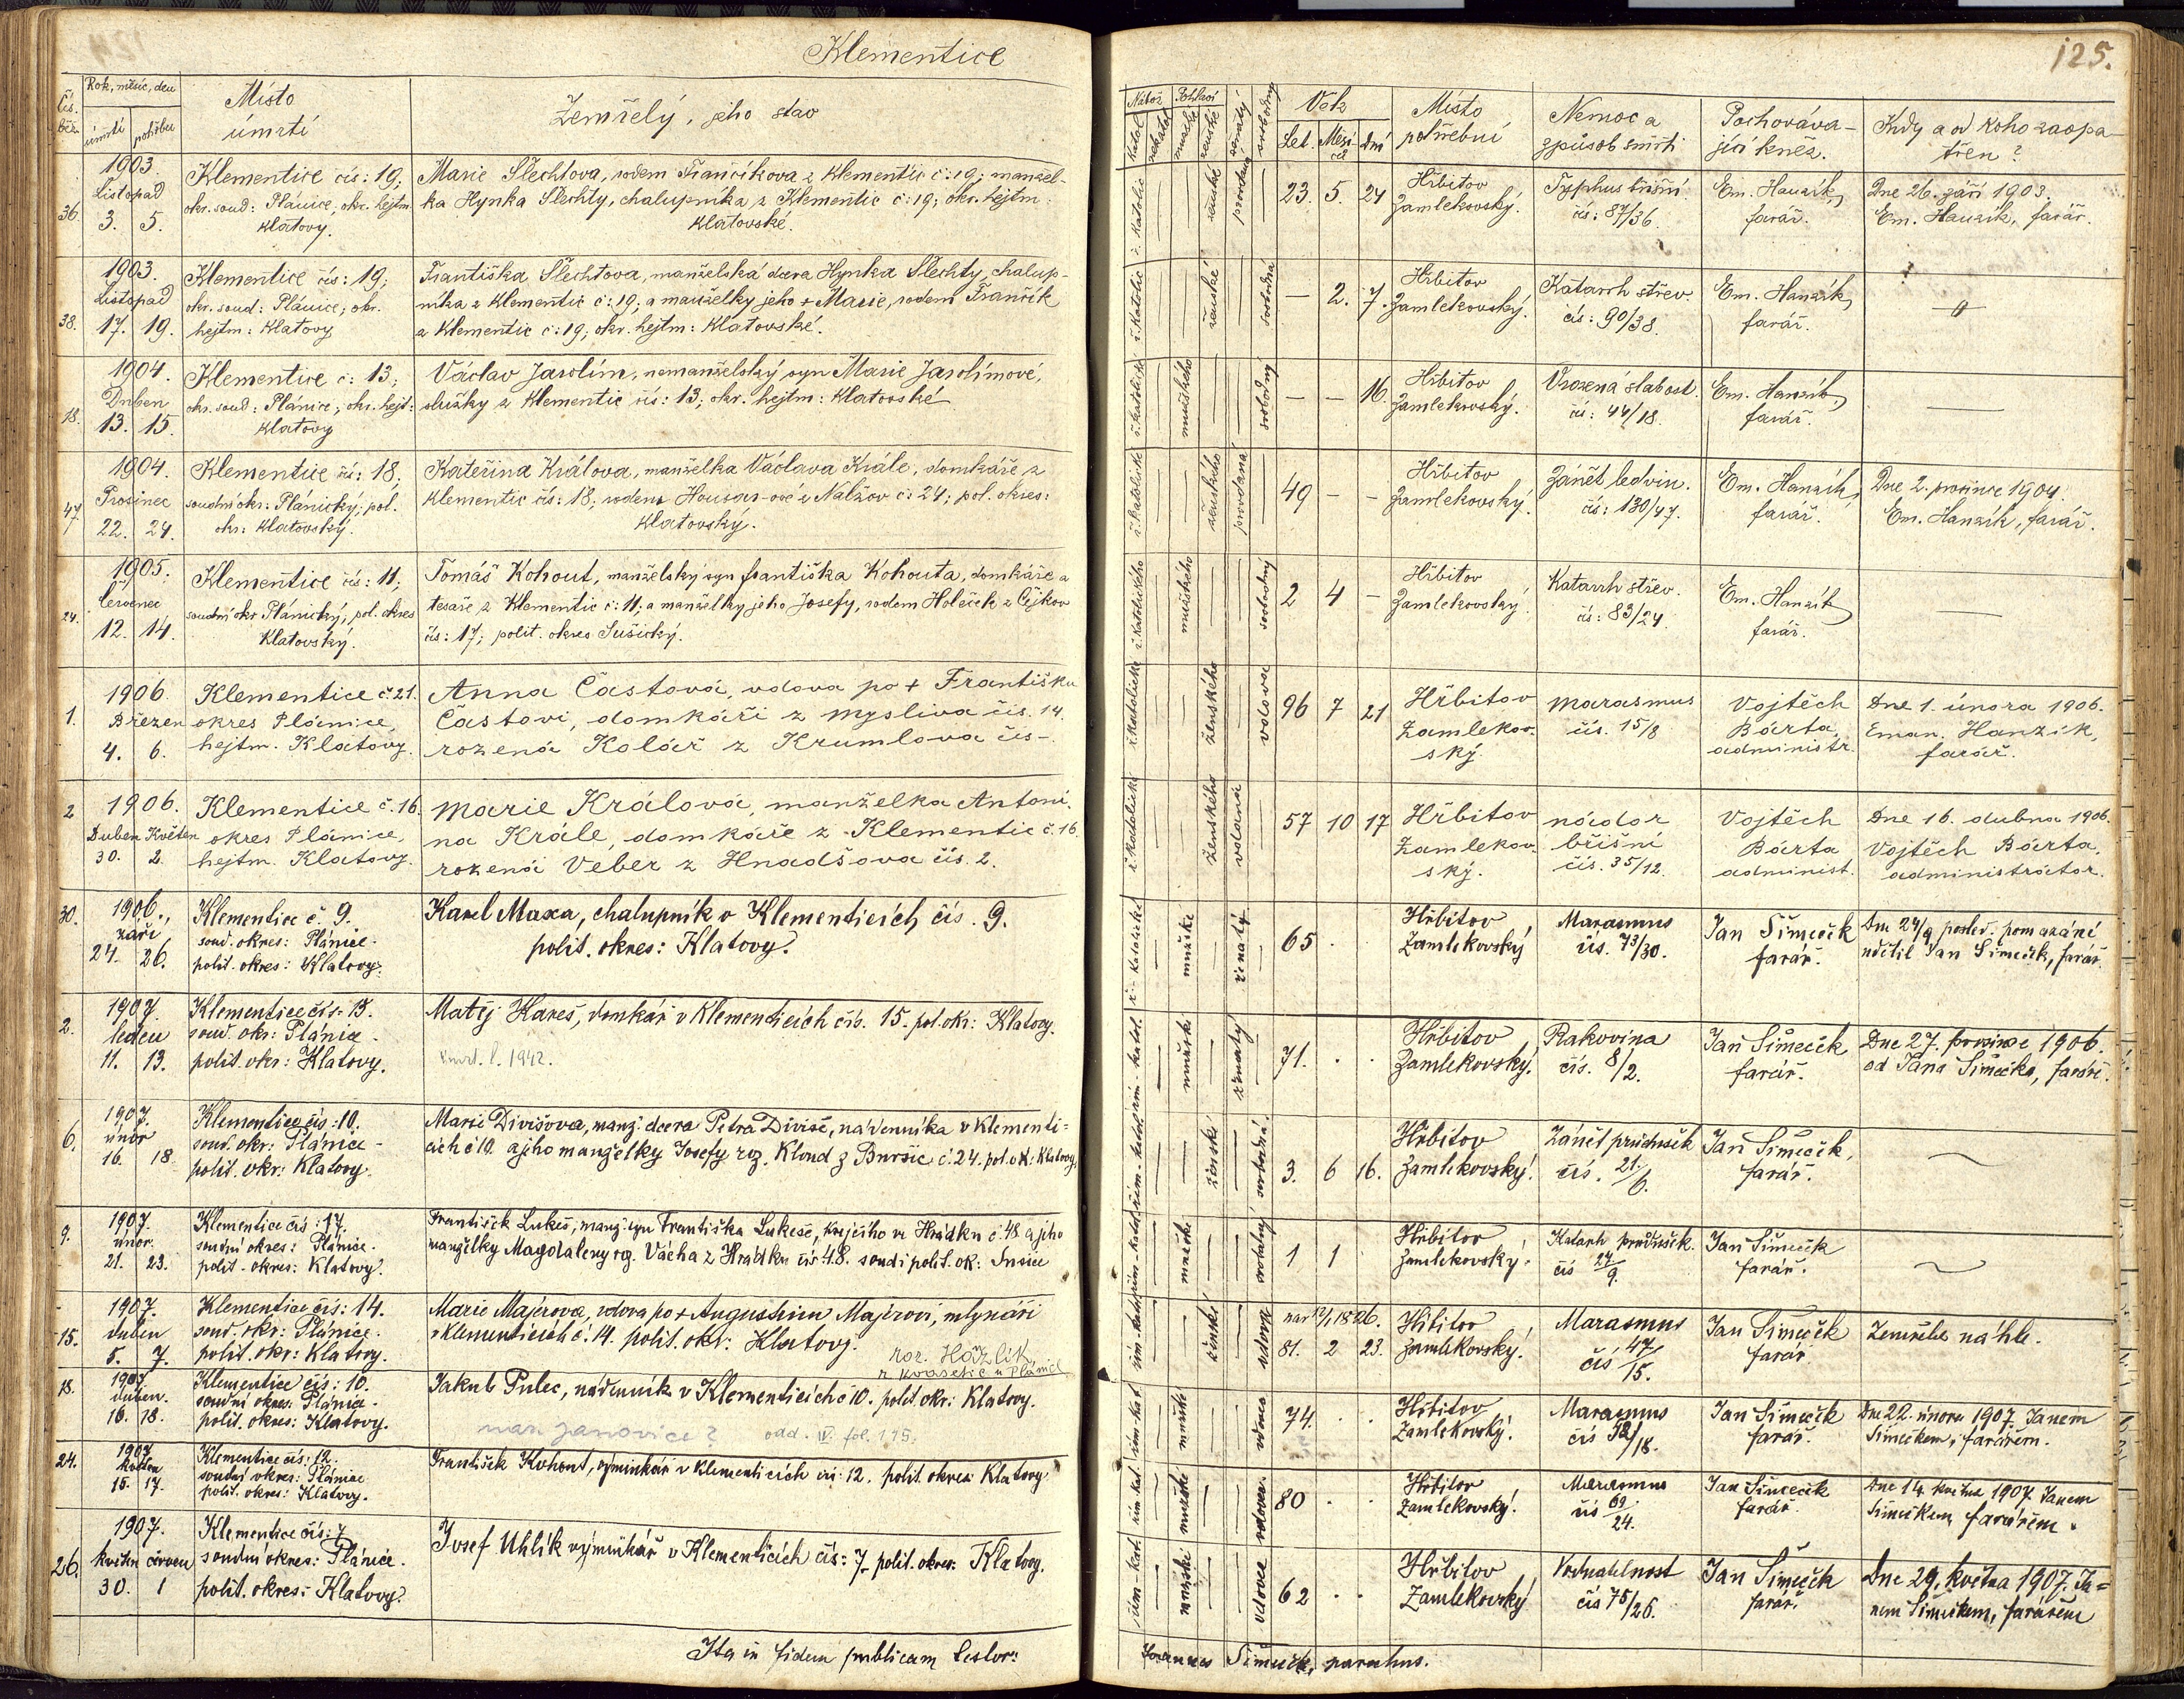 Klementice
125.
Čís. běž.
Rok, měsíc, den
úmrtí
pohřbu
Místo
úmrtí
Zemřelý, jeho stav
Nábož.
Pohlaví
katol.
nekatol.
mužské
ženské
ženatý
svobodný
Věk
Let.
Měsíců
dní
Místo
pohřební
Nemoc a
způsob smrti
Pochováva-
jící kněz.
Kdy a od koho zaopa-
třen?
36.
1903.
Listopad
3. 5.
Klementice čís: 19;
okr. soud: Plánice, okr. hejtm.
Klatovy.
Marie Šlechtova, rodem Frančíkova z Klementic č: 19; manžel-
ka Hynka Šlechty, chalupníka z Klementic č: 19; okr. hejtm:
Klatovské.
ř. katolic
ženské
provdaná
23. 5. 24
Hřbitov
Zamlekovský.
Typhus břišní
čís: 87/36.
Em. Hanzík,
farář.
Dne 26. září 1903.
Em. Hanzík, farář.
38.
1903.
Listopad
17. 19.
Klementice čís: 19;
okr. soud: Plánice; okr.
hejtm: Klatovy
Františka Šlechtova, manželská dcera Hynka Šlechty, chalup-
níka z Klementic č: 19; a manželky jeho + Marie, rodem Frančík
z Klementic č: 19; okr. hejtm: Klatovské.
ř. katolic
ženské
svobodna
— 2. 7.
Hřbitov
Zamlekovský.
Katarrh střev.
čís: 90/38.
Em. Hanzík,
farář.
18.
1904.
Duben
13. 15.
Klementice č: 13;
okr. soud: Plánice; okr. hejt:
Klatovy
Václav Jarolím, nemanželský syn Marie Jarolímové,
služky z Klementic čís: 13; okr. hejtm: Klatovské
ř. katolické
mužského
svobodný
— — 16.
Hřbitov
Zamlekovský.
Vrozená slabost.
čís: 44/18.
Em. Hanzík,
farář.
47.
1904.
Prosinec
22. 24.
Klementice čís: 18;
soudní okr: Plánický; pol.
okr: Klatovský.
Kateřina Králova, manželka Václava Krále, domkáře z
Klementic čís: 18; rodem Houzar-ové z Nalžov č: 24; pol. okres:
Klatovský.
ř. katolické
ženského
provdaná
49 - -
Hřbitov
Zamlekovský.
Zánět ledvin.
čís: 130/47.
Em. Hanzík,
farář.
Dne 2. prosince 1904.
Em. Hanzík, farář.
24.
1905.
Červenec
12. 14.
Klementice čís: 11;
soudní okr Plánický; pol. okres
Klatovský.
Tomáš Kohout, manželský syn Františka Kohouta, domkáře a
tesaře z Klementic č: 11; a manželky jeho Josefy, rodem Holeček z Čejkov
čís: 17; polit. okres Sušický.
ř. katolického
mužského
svobodný
2 4 -
Hřbitov
Zamlekovský.
Katarrh střev.
čís: 83/24.
Em. Hanzík
farář.
1.
1906.
Březen
4. 6.
Klementice č. 21.
okres Plánice
hejtm. Klatovy.
Anna Častová, vdova po + Františku
Častovi, domkáři z Mysliva čís. 14.
rozená Kolář z Krumlova čís-.
ř. katolické
ženského
vdova
96 7 21
Hřbitov
Zamlekov-
ský.
Marasmus
čís. 15/8
Vojtěch
Bárta,
administr.
Dne 1. února 1906.
Eman. Hanzík,
farář.
2
1906.
Duben Květen
30. 2.
Klementice č. 16.
okres Plánice,
hejtm. Klatovy.
Marie Králová, manželka Antoní-
na Krále, domkáře z Klementic č. 16.
rozená Veber z Hnadšova čís. 2.
ř. katolické
ženského
vdaná
57 10 17
Hřbitov
Zamlekov-
ský.
nádor
břišní
čís. 35/12.
Vojtěch
Bárta
administ.
Dne 16. dubna 1906.
Vojtěch Bárta,
administrátor.
30.
1906.,
září
24. 26.
Klementice č. 9.
soud. okres: Plánice.
polit. okres: Klatovy.
Karel Maxa, chalupník v Klementicích čís. 9.
polit. okres: Klatovy.
ř.- katolické
mužské
ženatý
65 . .
Hřbitov
Zamlekovský
Marasmus
čís. 73/30.
Jan Šimeček
farář.
Dne 24/9 posled. pomazání
udělil Jan Šimeček, farář.
2.
1907.
leden
11. 13.
Klementice čís: 15.
soud. okr: Plánice -
polit. okr: Klatovy.
Matěj Kareš, domkář v Klementicích čís. 15. pol. okr: Klatovy.
1942.
mužské
ženatý
71. . .
Hřbitov
Zamlekovský.
Rakovina
čís. 8/2.
Jan Šimeček
farář.
Dne 27. prosince 1906.
od Jana Šimečka, faráře.
6.
1907.
únor
16. 18
Klementice čís: 10.
soud. okr: Plánice -
polit. okr: Klatovy.
Marie Divišova, manž. dcera Petra Diviše, nádenníka v Klementi=
cích č 10. a jeho manželky Josefy roz. Kloud z Buršic č. 24. pol. ok: Klatovy.
ženské
svobodná
3. 6 16.
Hřbitov
Zamlekovský.
Zánět průdušek
čís. 21/6.
Jan Šimeček,
farář.
9.
1907.
únor.
21. 23.
Klementice čís: 17.
soudní okres: Plánice.
polit. okres: Klatovy.
František Lukeš, manž. syn Františka Lukeše, krejčího ve Hrádku č. 48. a jeho
manželky Magdaleny roz. Vácha z Hrádku čís. 48. soud i polit. ok: Sušice
mužské
svobodný
1 1
Hřbitov
Zamlekovský.
Katarh průdušek.
čís 27/9.
Jan Šimeček
farář.
15.
1907.
duben
5. 7.
Klementice čís: 14.
soud. okr: Plánice.
polit. okr: Klatovy.
Marie Majerova, vdova po + Augustinu Majerovi, mlynáři
v Klementicích č. 14. polit. okr: Klatovy.
roz. Hozlík
z Kvasetic u Plánice
ženské
vdova
nar 12/1 1826.
81. 2 23.
Hřbitov
Zamlekovský.
Marasmus
čís 47/15.
Jan Šimeček
farář
Zemřela náhle.
18.
1907.
duben.
16. 18.
Klementice čís: 10.
soudní okres: Plánice.
polit. okres: Klatovy.
Jakub Pulec, nádenník v Klementicích č 10. polit. okr: Klatovy.
nar. Janovice? odd. IV. fol. 115.
mužské
vdovec
74. . .
Hřbitov
Zamlekovský.
Marasmus
čís 52/18.
Jan Šimeček
farář.
Dne 22. února 1907. Janem
Šimečkem, farářem.
24.
1907
květen
15. 17.
Klementice čís: 12.
soudní okres: Plánice
polit. okres: Klatovy.
František Kohout, výminkář v Klementicích čís: 12. polit. okres: Klatovy.
mužské
vdovec
80 . .
Hřbitov
Zamlekovský.
Marasmus
čís 69/24.
Jan Šimeček
farář.
Dne 14. května 1907. Janem
Šimečkem, farářem.
26.
1907.
květen červen
30. 1
Klementice čís: 7
soudní okres: Plánice.
polit. okres: Klatovy.
Josef Uhlík výminkář v Klementicích čís: 7. polit. okres: Klatovy.
řím-kat.
mužské
vdovec
62 . .
Hřbitov
Zamlekovský
Vodnatelnost
čís 75/26.
Jan Šimeček
farář.
Dne 29. května 1907. Ja=
nem Šimečkem, farářem
Ita in fidem publicam testor:
Joannes Šimeček, parochus.